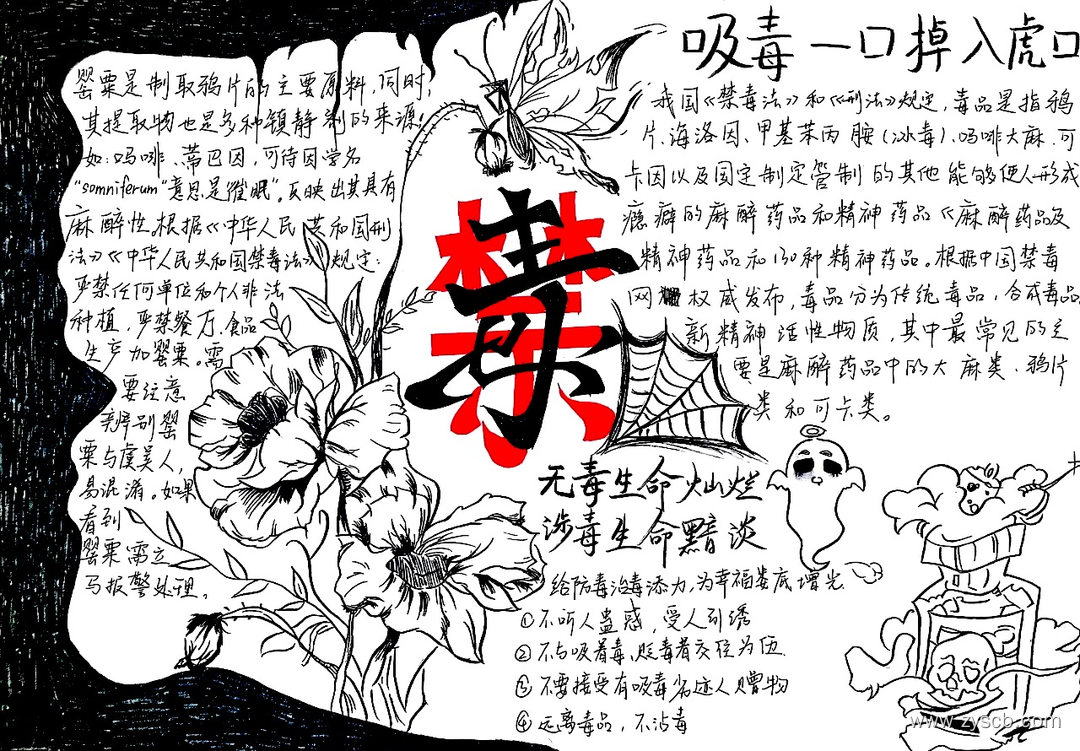 吸毒一口掉入虎口
罂粟是制取鸦片的主要原料,同时,
其提取物也是多种镇静剂的来源。
如:吗啡、蒂巴因,可待因学名
"somniferum"意思是催眠"。反映出其具有
麻醉性。根据《中华人民共和国刑
法》《中华人民共和国禁毒法》规定:
严禁任何单位和个人非法
种植,严禁餐厅、食品
生产加罂粟。需
要注意
辨别罂
粟与虞美人,
易混淆。如果
看到
罂粟需立
马报警处理。
禁毒
我国《禁毒法》和《刑法》规定,毒品是指鸦
片、海洛因、甲基苯丙胺(冰毒)、吗啡大麻、可
卡因以及国定制定管制的其他能够使人形成
瘾癖的麻醉药品和精神药品《麻醉药品及
精神药品和130种精神药品。根据中国禁毒
网 权威发布,毒品分为传统毒品,合成毒品,
新精神活性物质,其中最常见的主
要是麻醉药品中的大麻类、鸦片
类和可卡类。
无毒生命灿烂
涉毒生命黯淡
给防毒治毒添力,为幸福娄底增光
①不听人蛊惑,受人引诱
②不与吸着毒、贩毒者交往为伍.
③不要接受有吸毒劣迹人赠物
④远离毒品,不沾毒
www.zyscb.com